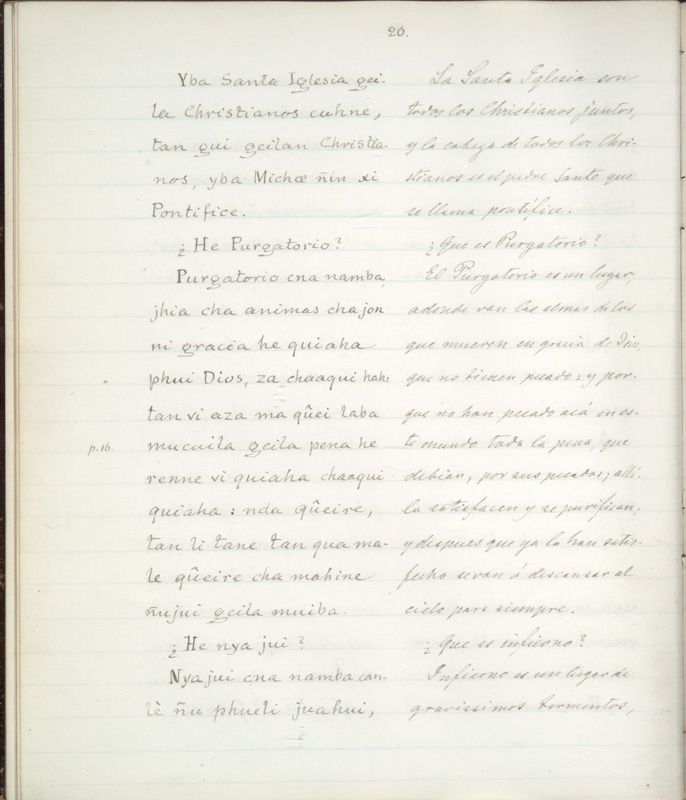 20.
Yba Santa Iglesia gei-
la Christianos cuhne,
tan gui geilan Christia-
nos, yba Michæ ñin xi
Pontifice.
¿ He Purgatorio?
Purgatorio cna namba,
jhia cha animas chajon
ni gracia he quiaha
phui Dios, za chaaqui hah-
tan vi aza ma qûei laba
p.16. mucuila geila pena he
renne vi quiaha chaaqui
quiaha : nda qûeire,
tan li tane tan qua ma-
le qûeire cha mahine
ñujui geila muiba.
¿ He nya jui ?
Nya jui cna namba can-
lè ñu phueli juahui,
La Santa Iglesia son
todos los Christianos juntos,
y la cabeza de todos los Chri-
stianos es el padre Santo que
se llama pontífice.
¿ Que es Purgatorio?
El Purgatorio es un lugar,
adonde van las almas de los
que mueren en gracia de Dios,
que no tienen pecado : y por-
que no han pecado acá en es-
te mundo toda la pena, que
debian, por sus pecados; allí
la satisfacen y se purifican,
y despues que ya la han satis-
fecho se van á descansar al
cielo para siempre.
¿ Que es infierno?
Infierno es un lugar de
gravissimos tormentos,